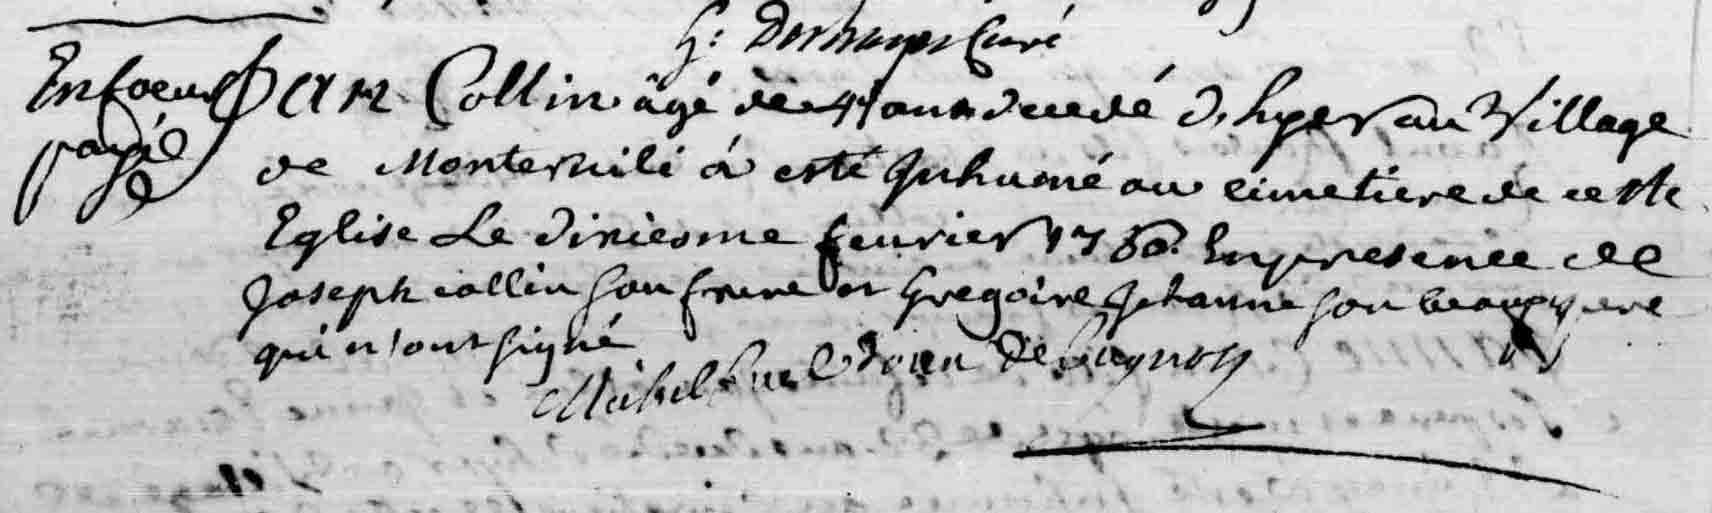 G: Deschamps Curé
En foeu
payé
Jan Collin âgé de 4 ans decedé d'hyer au Village
de Monternili á esté Inhumé au cimetiere de ceste
Eglise Le dixiesme feurier 17 En presence de
Joseph collin son frere et Gregoire Jehanne son beaupere
qui n'ont signé
Michel